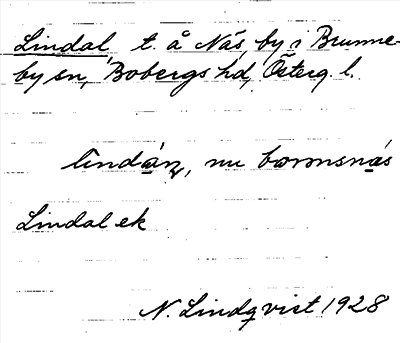 Lindal t. å Näs, by i Brunne-
by sn, Bobergs hd, Österg. l.
nu
Lindal ek
N. Lindqvist 1928